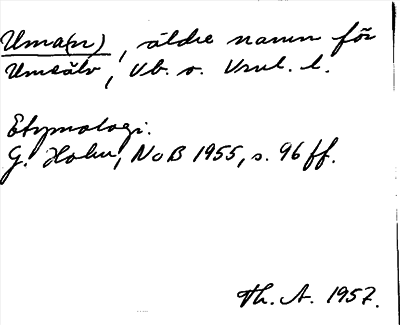 Uma(n), äldre namn för
Umeälv, Vb. o. Vml. l.
Etymologi.
G. Holm, NoB 1955, s. 96 ff.
Th. A. 1957.